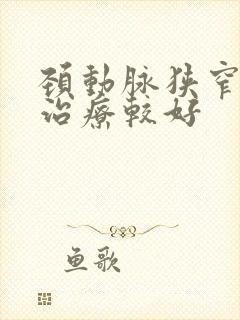 頚動脉狭窄
治療較好
鱼歌